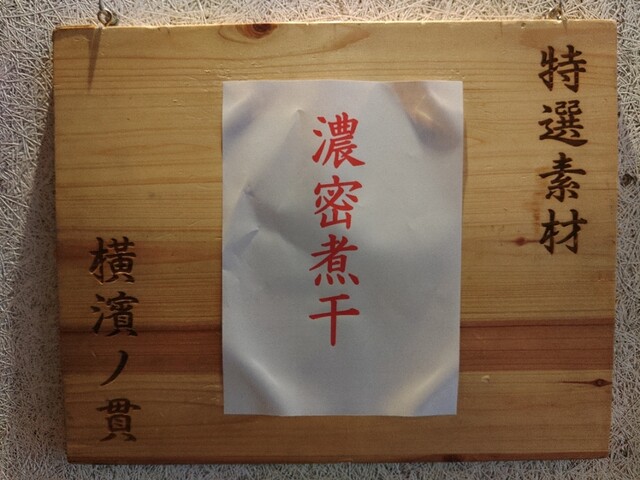 特選素材
濃密煮干
横濱ノ貫